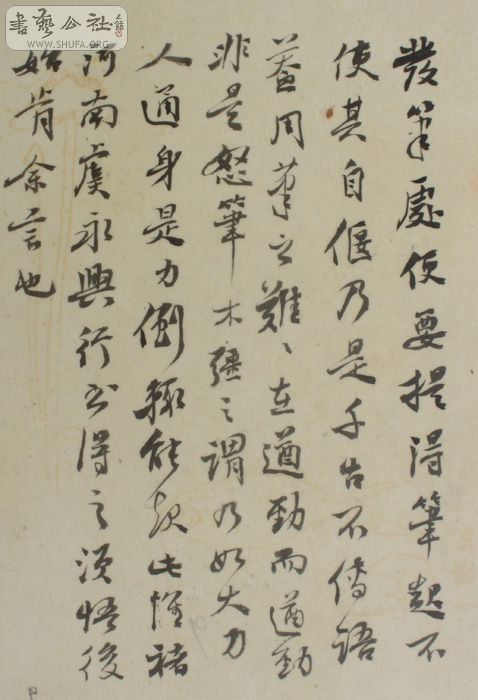 書藝公社
WWW.SHUFA.ORG
發筆處便要提得筆起不
使其自偃乃是千古不傳語
蓋用筆之難難在遒勁而遒勁
非是怒筆木強之謂乃如大力
人通身是力倒輒能起此惟褚
河南虞永興行書得之須悟後
始肯余言也